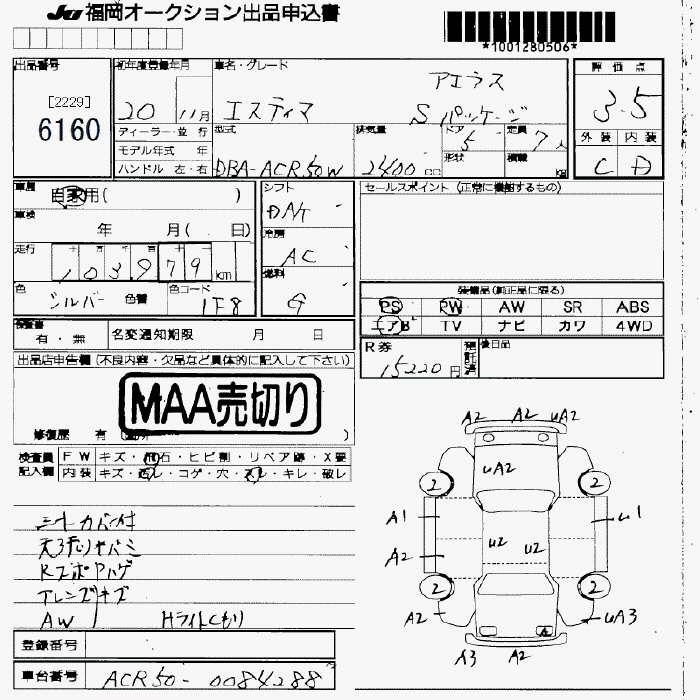 JU 福岡オークション出品申込書
*1001280506*
出品番号
[2229]
6160
初年度登録年月
20 11月
ディーラー・並 行
モデル年式 年
ハンドル 左・右
車名・グレード
アエラス
エスティマ Sパッケージ
型式
DBA-ACR50W
排気量
2400 cc
ドア
5
形状
定員
7人
積載
kg
評 価 点
3.5
外 装 内 装
C D
車歴
自家用( )
車検
年 月( 日)
走行
103979 km
色
シルバー 色替
色コード
1F8
シフト
DAT
冷房
AC
燃料
G
セールスポイント (正常に機能するもの)
装備品(純正品に限る)
PS RW AW SR ABS
エアB TV ナビ カワ 4WD
検査書
有・無
名変通知期限 月 日
R券
15220円
預託済
後日品
出品店申告欄(不良内容・欠品など具体的に記入して下さい)
MAA売切り
修復歴 有 (箇所 )
検査員
記入欄
FW キズ・飛石・ヒビ割・リペア跡・X要
内装 キズ・汚レ・コゲ・穴・スレ・キレ・破レ
ニナカバー付
天張リヤバミ
Rスポアハゲ
アレンズキズ
AW Hライトくもり
A2 A2 uA2
uA2
2 2
A1 u1
A2 u2 u2
2 2
A2 uA3
A3 A2
登録番号
車台番号
ACR50-0084288